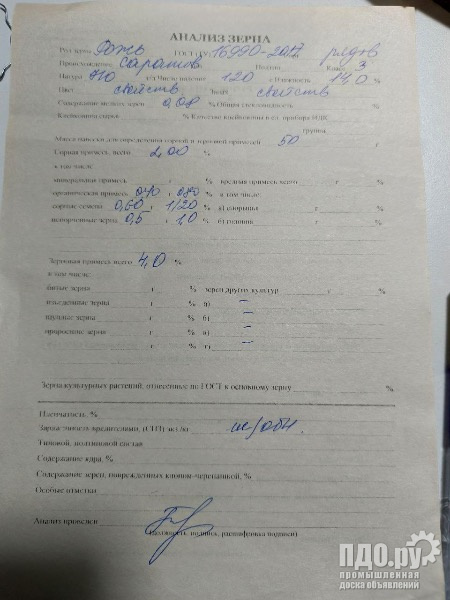 АНАЛИЗ ЗЕРНА
Род зерна Рожь ГОСТ (ТУ) 16990-2017 рядов
Происхождение Саратов Класс 3
Натура 710 г/л Число падения 120 с Влажность 14,0 %
Цвет свойств Запах свойств
Содержание мелких зерен 0,08 % Общая стекловидность %
Клейковина сырая % Качество клейковины в ед. прибора ИДК
группа
Масса навески для определения сорной и зерновой примесей 50 г
Сорная примесь, всего 2,00 %
в том числе:
минеральная примесь г % вредная примесь всего г %
органическая примесь г % в том числе:
сорные семена 0,60 г 1,20 % а) спорынья г %
испорченные зерна 0,5 г 1,0 % б) головня г %
Зерновая примесь всего 4,0 %
в том числе:
битые зерна г % зерен других культур г %
изъеденные зерна г % а) –
щуплые зерна г % б) –
проросшие зерна г % в) –
г % г) –
Зерна культурных растений, отнесенные по ГОСТ к основному зерну %
Пленчатость, %
Зараженность вредителями, (СПЗ) экз./кг не/обн.
Типовой, подтиповой состав
Содержание ядра, %
Содержание зерен, поврежденных клопом-черепашкой, %
Особые отметки
Анализ произвел
(должность, подпись, расшифровка подписи)
ПДО.ру
промышленная
доска объявлений